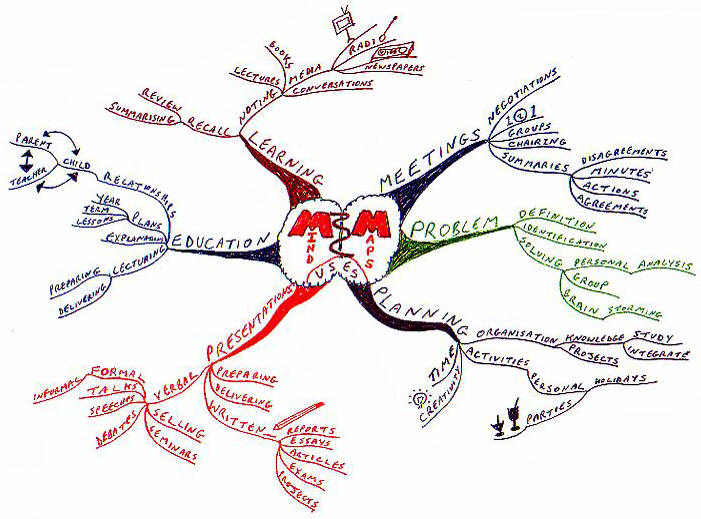 MIND MAPS
USES
LEARNING
NOTING
MEDIA
RADIO
VIDEO
NEWSPAPERS
BOOKS
LECTURES
CONVERSATIONS
RECALL
REVIEW
SUMMARISING
MEETINGS
NEGOTIATIONS
GROUPS
CHAIRING
SUMMARIES
DISAGREEMENTS
MINUTES
ACTIONS
AGREEMENTS
PROBLEM
DEFINITION
IDENTIFICATION
SOLVING
PERSONAL ANALYSIS
GROUP
BRAIN STORMING
PLANNING
ORGANISATION
KNOWLEDGE
STUDY
INTEGRATE
PROJECTS
ACTIVITIES
PERSONAL
HOLIDAYS
PARTIES
TIME
CREATIVITY
PRESENTATIONS
PREPARING
DELIVERING
WRITTEN
REPORTS
ESSAYS
ARTICLES
EXAMS
PROJECTS
VERBAL
FORMAL
INFORMAL
TALKS
SPEECHES
DEBATES
SELLING
SEMINARS
EDUCATION
RELATIONSHIPS
CHILD
PARENT
TEACHER
PLANS
YEAR
TERM
LESSONS
EXPLANATIONS
LECTURING
PREPARING
DELIVERING